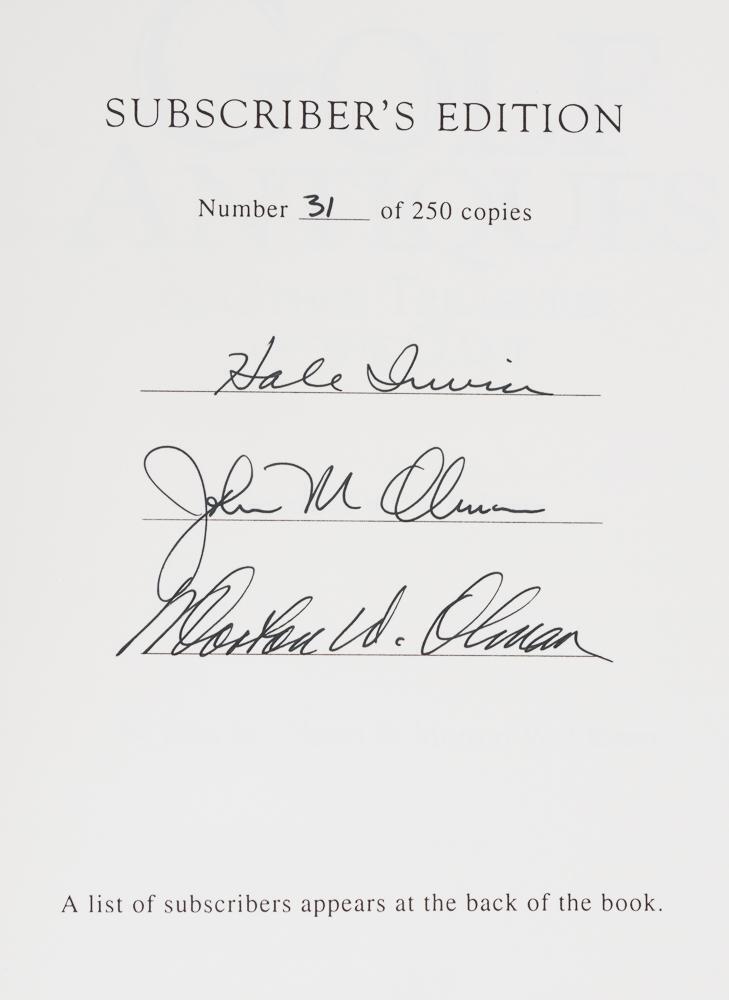 SUBSCRIBER'S EDITION
Number 31 of 250 copies
Hale Irwin
John M Olman
Morton W. Olman
A list of subscribers appears at the back of the book.